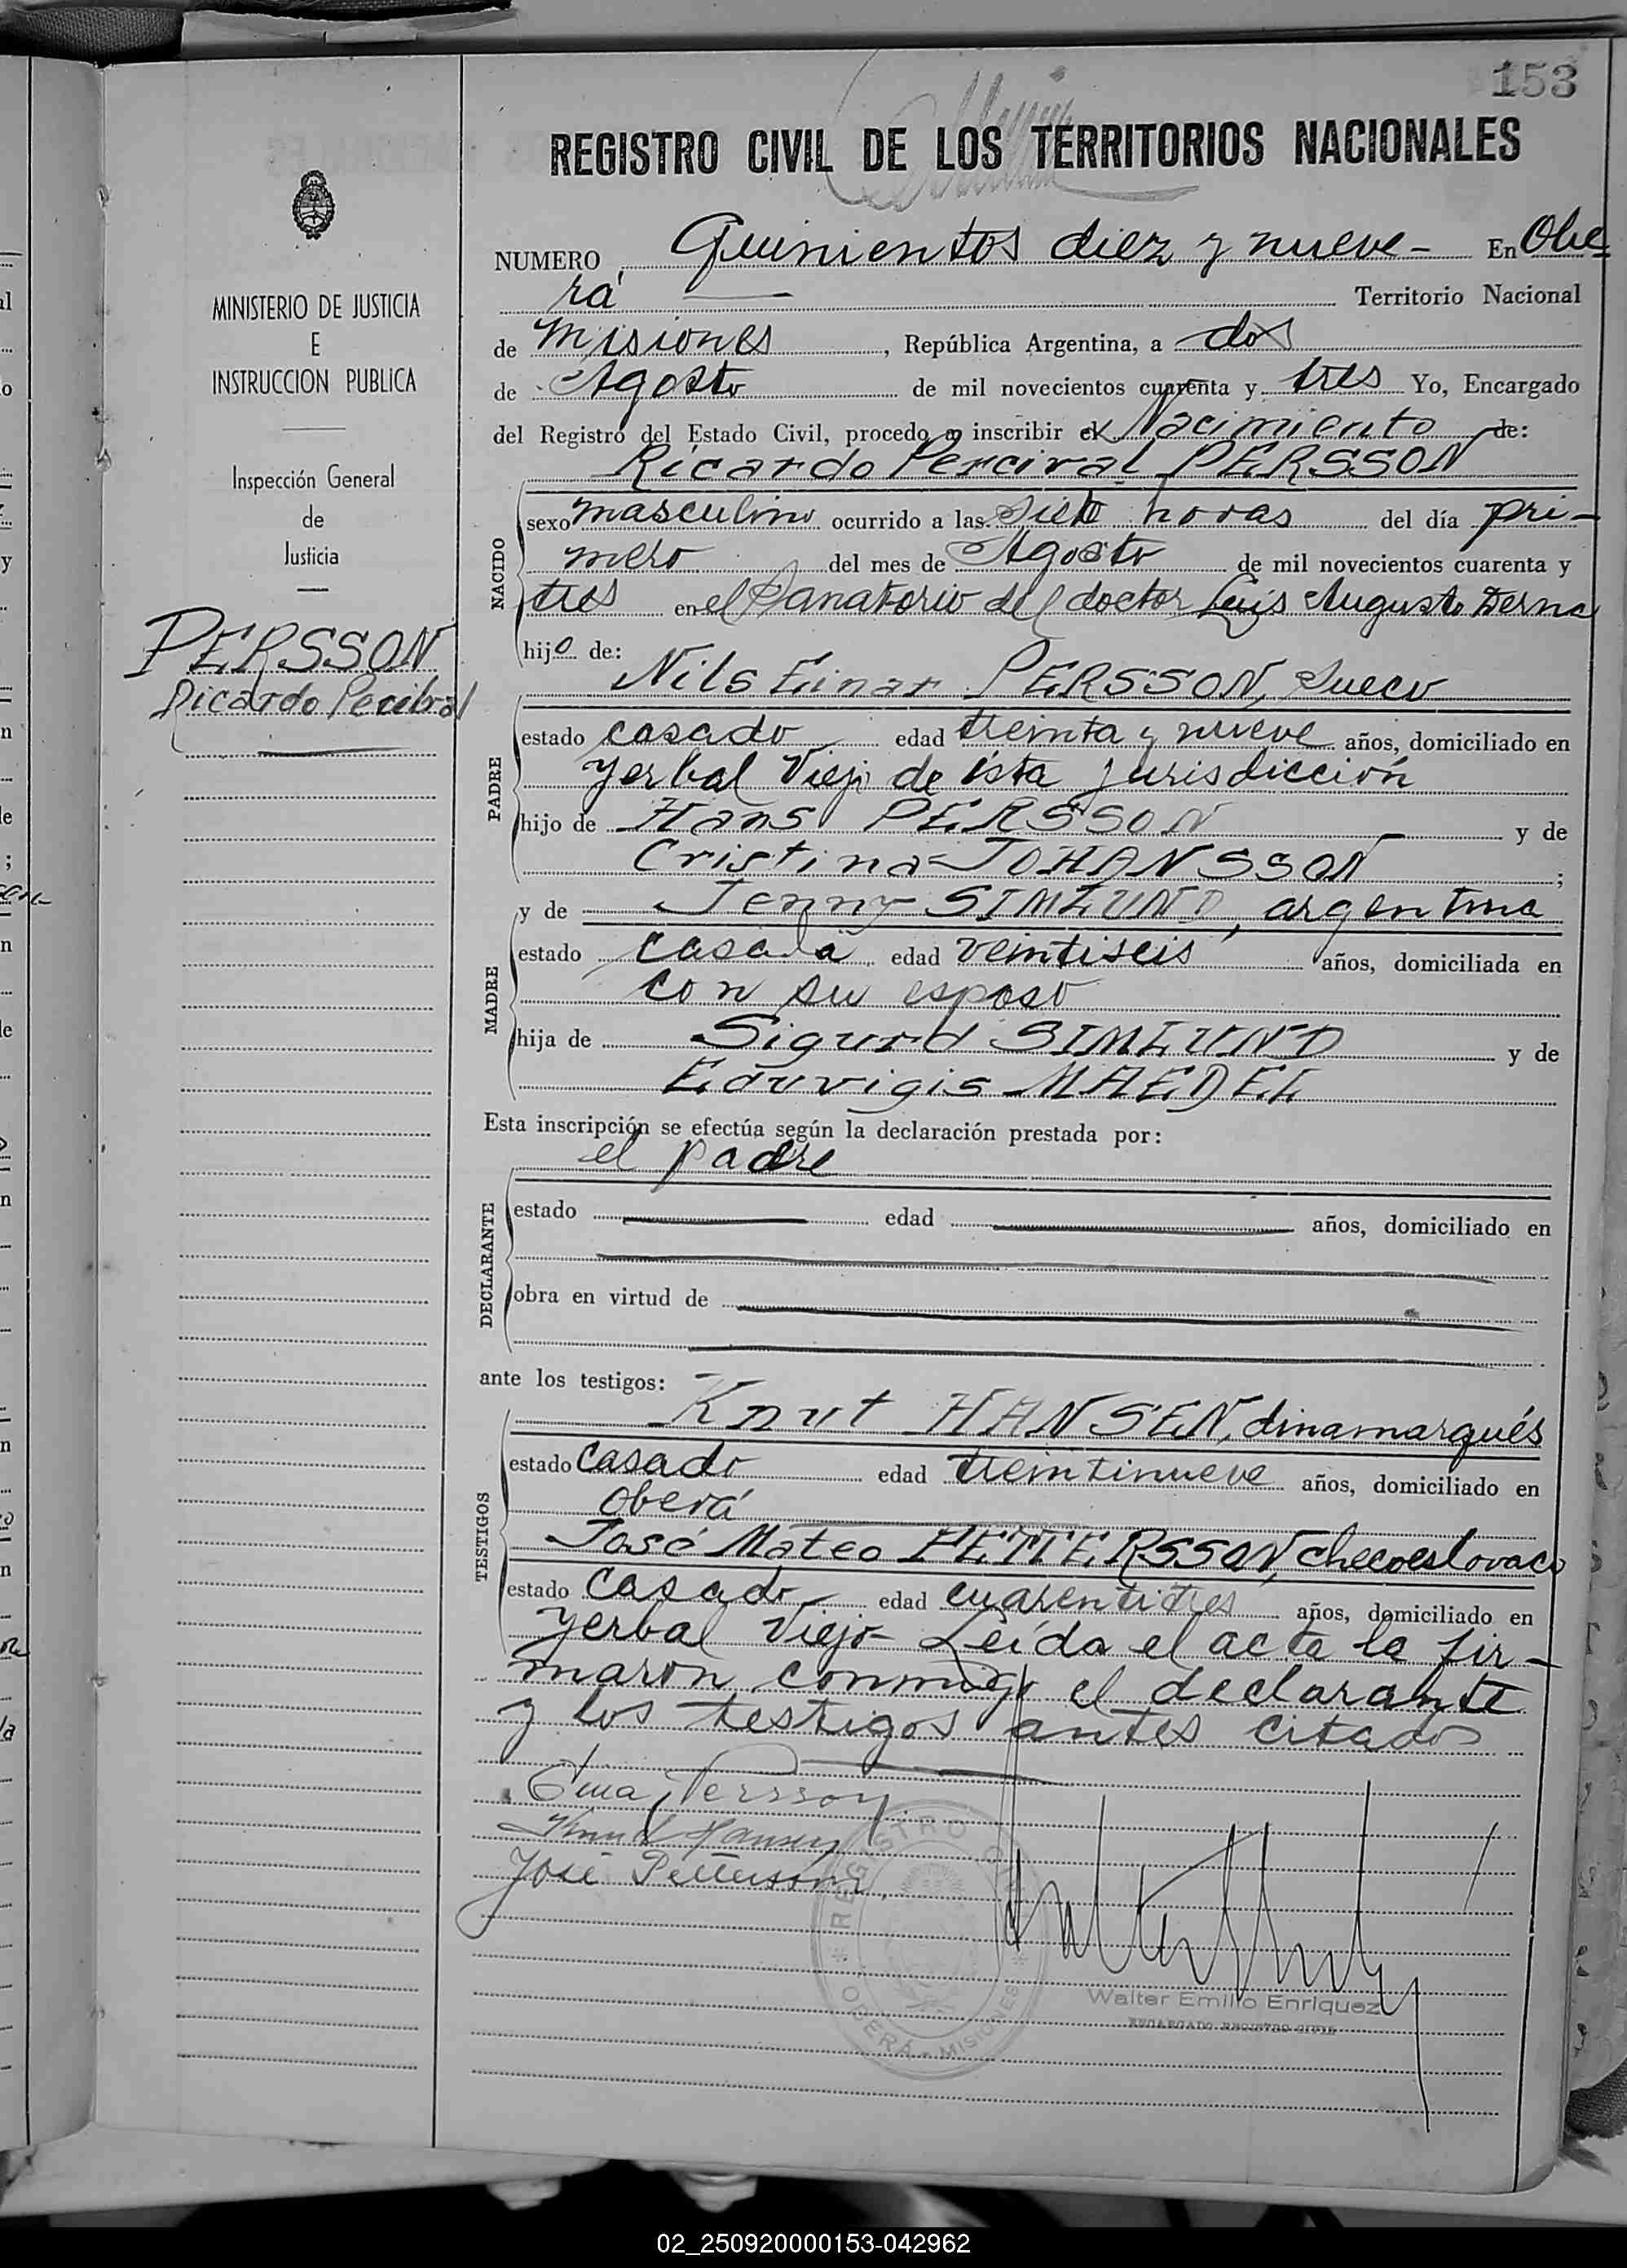 153
REGISTRO CIVIL DE LOS TERRITORIOS NACIONALES
MINISTERIO DE JUSTICIA
E
INSTRUCCION PUBLICA
Inspección General
de
Justicia
PERSSON
Ricardo Percibal
NUMERO Quinientos diez y nueve - En Obe-
rá Territorio Nacional
de Misiones, República Argentina, a dos
de Agosto de mil novecientos cuarenta y tres Yo, Encargado
del Registro del Estado Civil, procedo a inscribir el Nacimiento de:
Ricardo Percival PERSSON
NACIDO
sexo masculino ocurrido a las siete horas del día pri-
mero del mes de Agosto de mil novecientos cuarenta y
tres en el Sanatorio del doctor Luis Augusto Derna
hijo de:
Nils Einar PERSSON, sueco
PADRE
estado casado edad treinta y nueve años, domiciliado en
Yerbal Viejo de ésta jurisdicción
hijo de Hans PERSSON y de
Cristina JOHANSSON;
y de Jenny SIMLUND, argentina
MADRE
estado casada edad veintiseis años, domiciliada en
con su esposo
hija de Sigurd SIMLUND y de
Eduvigis MAEDEL
Esta inscripción se efectúa según la declaración prestada por:
el padre
DECLARANTE
estado edad años, domiciliado en
obra en virtud de
ante los testigos:
Knut HANSEN, dinamarqués
TESTIGOS
estado casado edad treintinueve años, domiciliado en
Oberá
José Mateo PETTERSSON, checoeslovaco
estado casado edad cuarentitres años, domiciliado en
Yerbal Viejo - Leída el acta la fir-
maron conmigo el declarante
y los testigos antes citados
Einar Persson
Knud Hansen
José Pettersson
REGISTRO CIVIL
OBERÁ - MISIONES
Walter Emilio Enriquez
ENCARGADO REGISTRO CIVIL
02_250920000153-042962